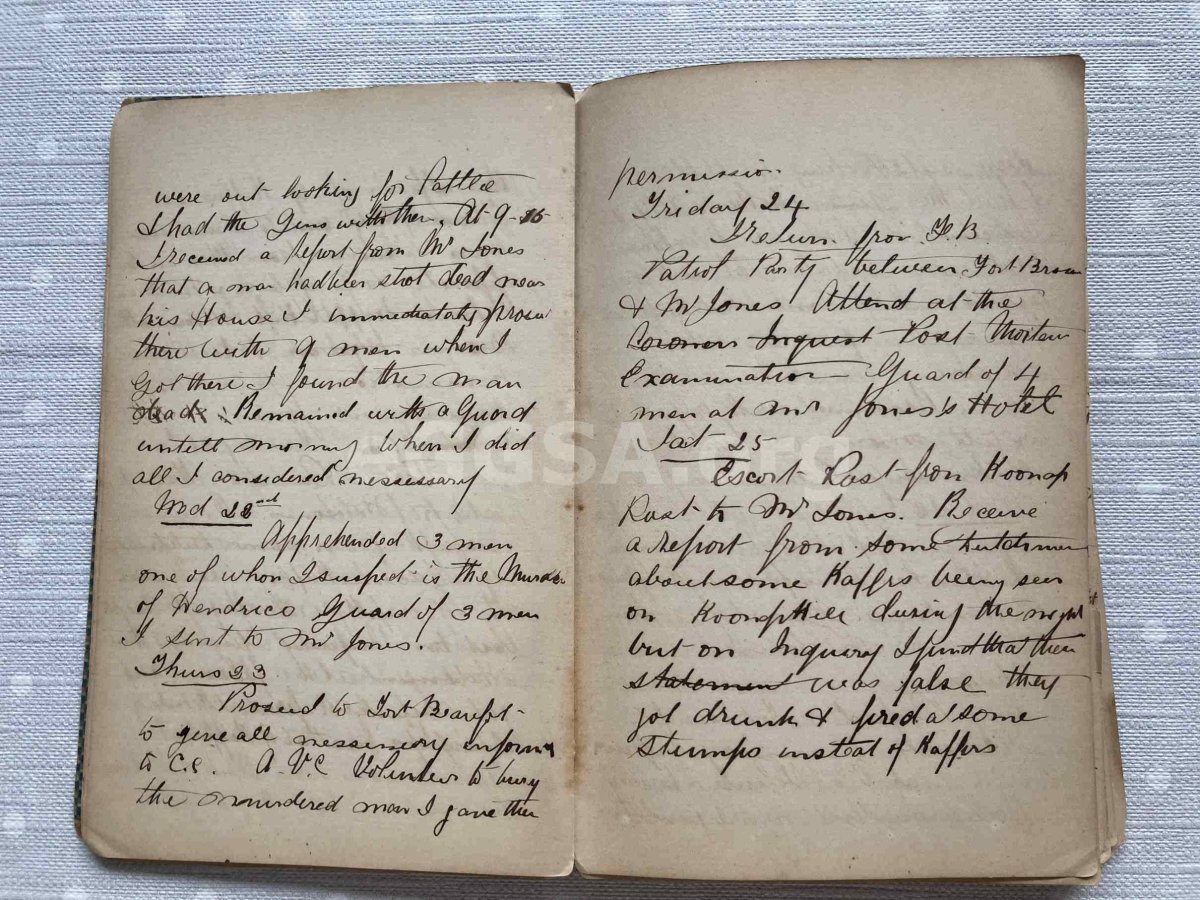 were out looking for Cattle
I had the Guns with them. At 9-15
I received a Report from Mr Jones
that a man had been shot dead near
his House I immediately proceed
there with 9 men when I
Got there I found the man
dead. Remained with a Guard
untill morning when I did
all I considered nessessary
Wed 22nd
Apprehended 3 men
one of whom I suspect is the Murder
of Hendrico Guard of 3 men
I sent to Mr Jones.
Thurs 23
Proceed to Fort Beaufort
to give all nessessary inform
to C.C. A.V.C Volunteer to bury
the murdered man I gave them
permission
Friday 24
I return from F.B.
Patrol Party between Fort Brown
& Mr Jones Attend at the
Coroners Inquest Post Mortem
Examination Guard of 4
men at Mr Jones's Hotel
Sat 25
Escort Post from Koonap
Post to Mr Jones. Receive
a Report from some Dutchmen
about some Kaffrs being seen
on Koonap Hill during the night
but on Inquiry I find that their
statement was false they
got drunk & fired at some
Stumps insteat of Kaffrs
GGSA.org